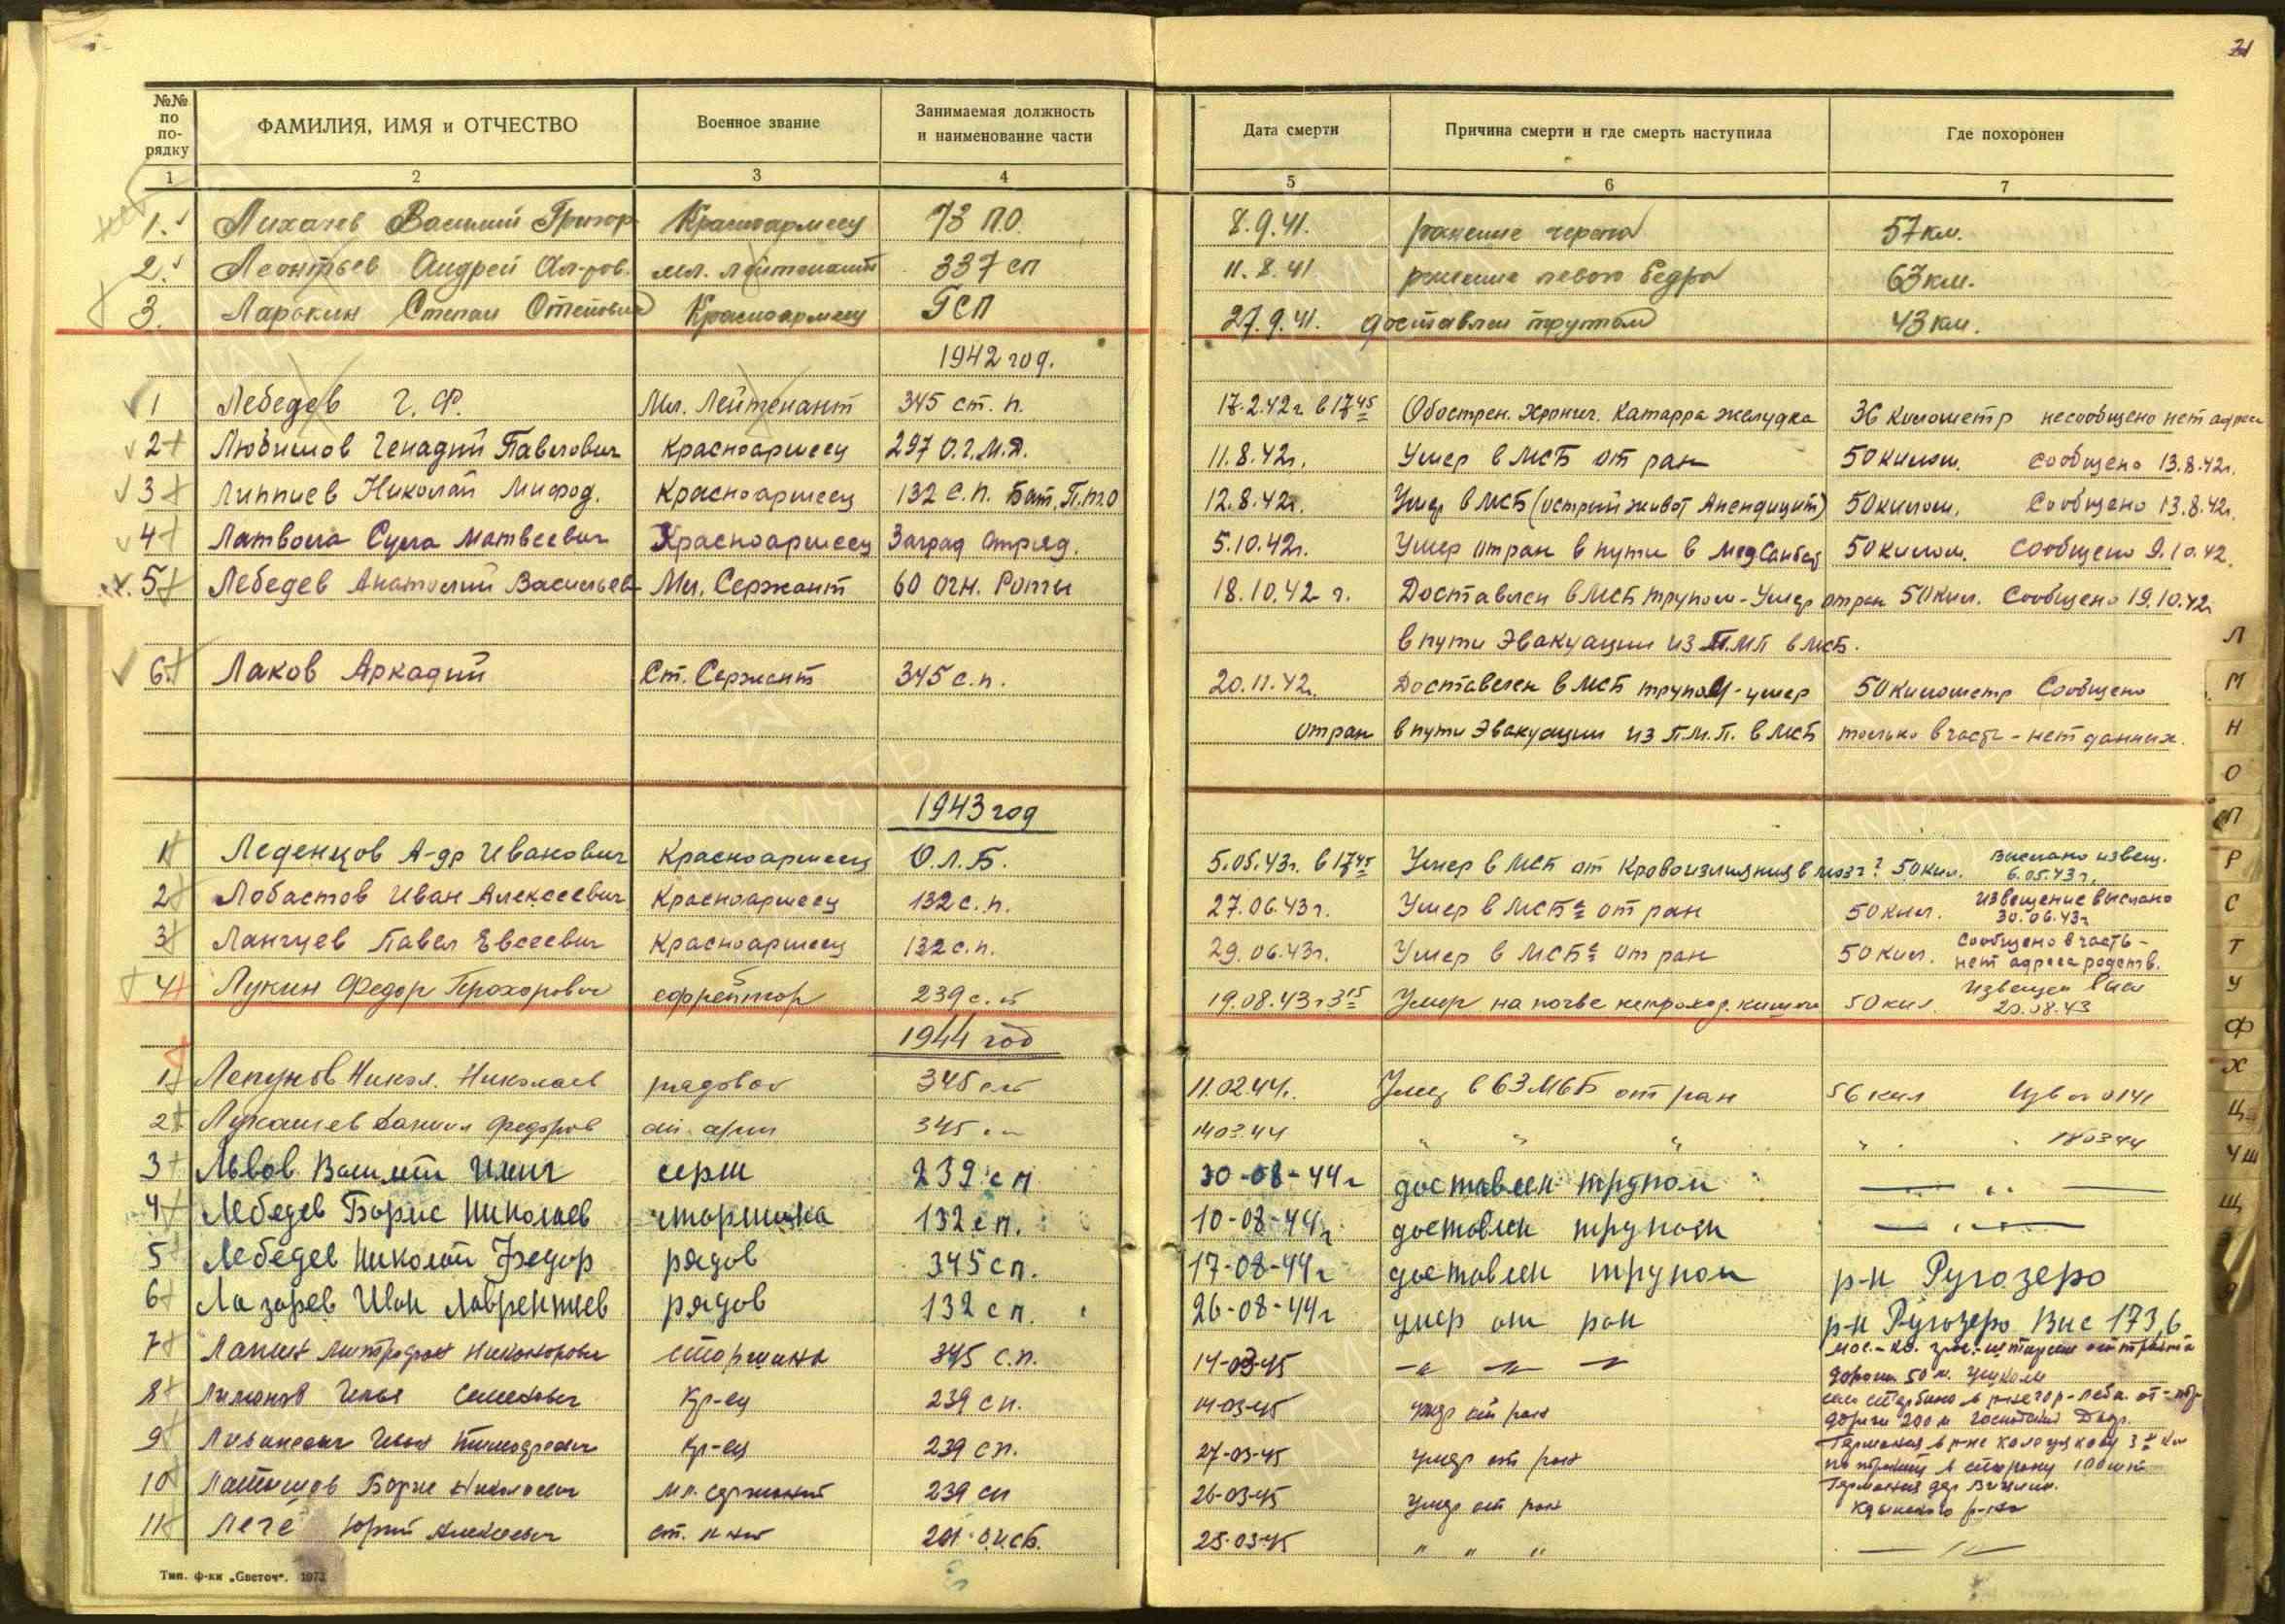 21
№№ по по-рядку
ФАМИЛИЯ, ИМЯ и ОТЧЕСТВО
Военное звание
Занимаемая должность и наименование части
Дата смерти
Причина смерти и где смерть наступила
Где похоронен
1 2 3 4 5 6 7
1. Лихачев Василий Григор Красноармеец 73 П.О. 8.9.41. ранение черепа 57 км.
2. Леонтьев Андрей Ал-ров. мл. лейтенант 337 сп 11.8.41 ранение левого бедра 63 км.
3. Ларькин Степан Красноармеец ГСП 27.9.41. доставлен трупом 43 км.
1942 год.
1 Лебедев Г. Ф. Мл. Лейтенант 345 ст. п. 17.2.42г. в 17 45 Обострен. Хронич. Катарра желудка 36 километр несообщено нет адреса
2 Любимов Генадий Павлович Красноармеец 297 О.Г.М.Д. 11.8.42г. Умер в МСБ от ран 50 килом. Сообщено 13.8.42г.
3 Липпиев Николай Мифод. Красноармеец 132 С.П. Бат. П.т.о 12.8.42г. Умер в МСБ (острый живот Апендицит) 50 килом. Сообщено 13.8.42г.
4 Латвола Сула Матвеевич Красноармеец Заград отряд. 5.10.42г. Умер от ран в пути в МедСанбат 50 килом. Сообщено 9.10.42.
5 Лебедев Анатолий Васильев Мл. Сержант 60 огн. Роты 18.10.42 г. Доставлен в МСБ трупом - Умер от ран 50 кил. Сообщено 19.10.42г.
в пути Эвакуации из П.МП в МСБ.
6. Лаков Аркадий Ст. Сержант 345 с.п. 20.11.42г. Доставлен в МСБ трупом - умер 50 километр Сообщено
от ран в пути Эвакуации из П.М.П. в МСБ только в часть - нет данных.
1943 год
1 Леденцов А-др Иванович Красноармеец О.Л.Б. 5.05.43г. в 17 45 Умер в МСБ от Кровоизлияния в мозг? 50 кил. Выслано извещ. 6.05.43г.
2 Лобастов Иван Алексеевич Красноармеец 132 с.п. 27.06.43г. Умер в МСБе от ран 50 кил. Извещение выслано 30.06.43г
3 Лангуев Павел Евсеевич Красноармеец 132 с.п. 29.06.43г. Умер в МСБе от ран 50 кил. Сообщено в часть - нет адреса родств.
4 Лукин Федор Прохорович ефрейтор 239 с.п 19.08.43г 3 15 Умер на почве непроход. кишеч 50 кил. Извещен выс 20.08.43
1944 год
1 Лепунов Никол. Николаев рядовой 345 сп 11.02.44г. Умер в 63 МСБ от ран 56 кил
2 Лукашев Даниил Федоров 345 14 03 44 " " " " 18 03 44
3 Львов Василий Ильич серж 239 сп 30-08-44г доставлен трупом — " —
4 Лебедев Борис Николаев старшина 132 сп. 10-08-44г доставлен трупом — " —
5 Лебедев Николай Федор рядов 345 сп. 17-08-44г доставлен трупом р-н Ругозеро
6 Лазарев Иван Лаврентьев рядов 132 сп. 26-08-44г умер от ран р-н Ругозеро Выс 173,6
7 Лапин Митрофан Никонорович старшина 345 с.п. 14-03-45 - " - " - " дороги 50 м.
8 Лимонов Илья Семенович Кр-ец 239 сп. 14-03-45 умер от ран дороги 200 м Господский Двор.
9 Иван Тимофеевич Кр-ец 239 сп. 27-03-45 умер от ран Германия в р-не
10 Латышов Борис Николаевич мл. сержант 239 сп 26-03-45 умер от ран Германия дер
11 Леге Юрий Алексеевич ст. л-нт 201 о.и.сб. 25-03-45 " " " — " —
Л
М
Н
О
П
Р
С
Т
У
Ф
Х
Ц
Ч Ш
Щ
Тип. ф-ки „Светоч". 1973